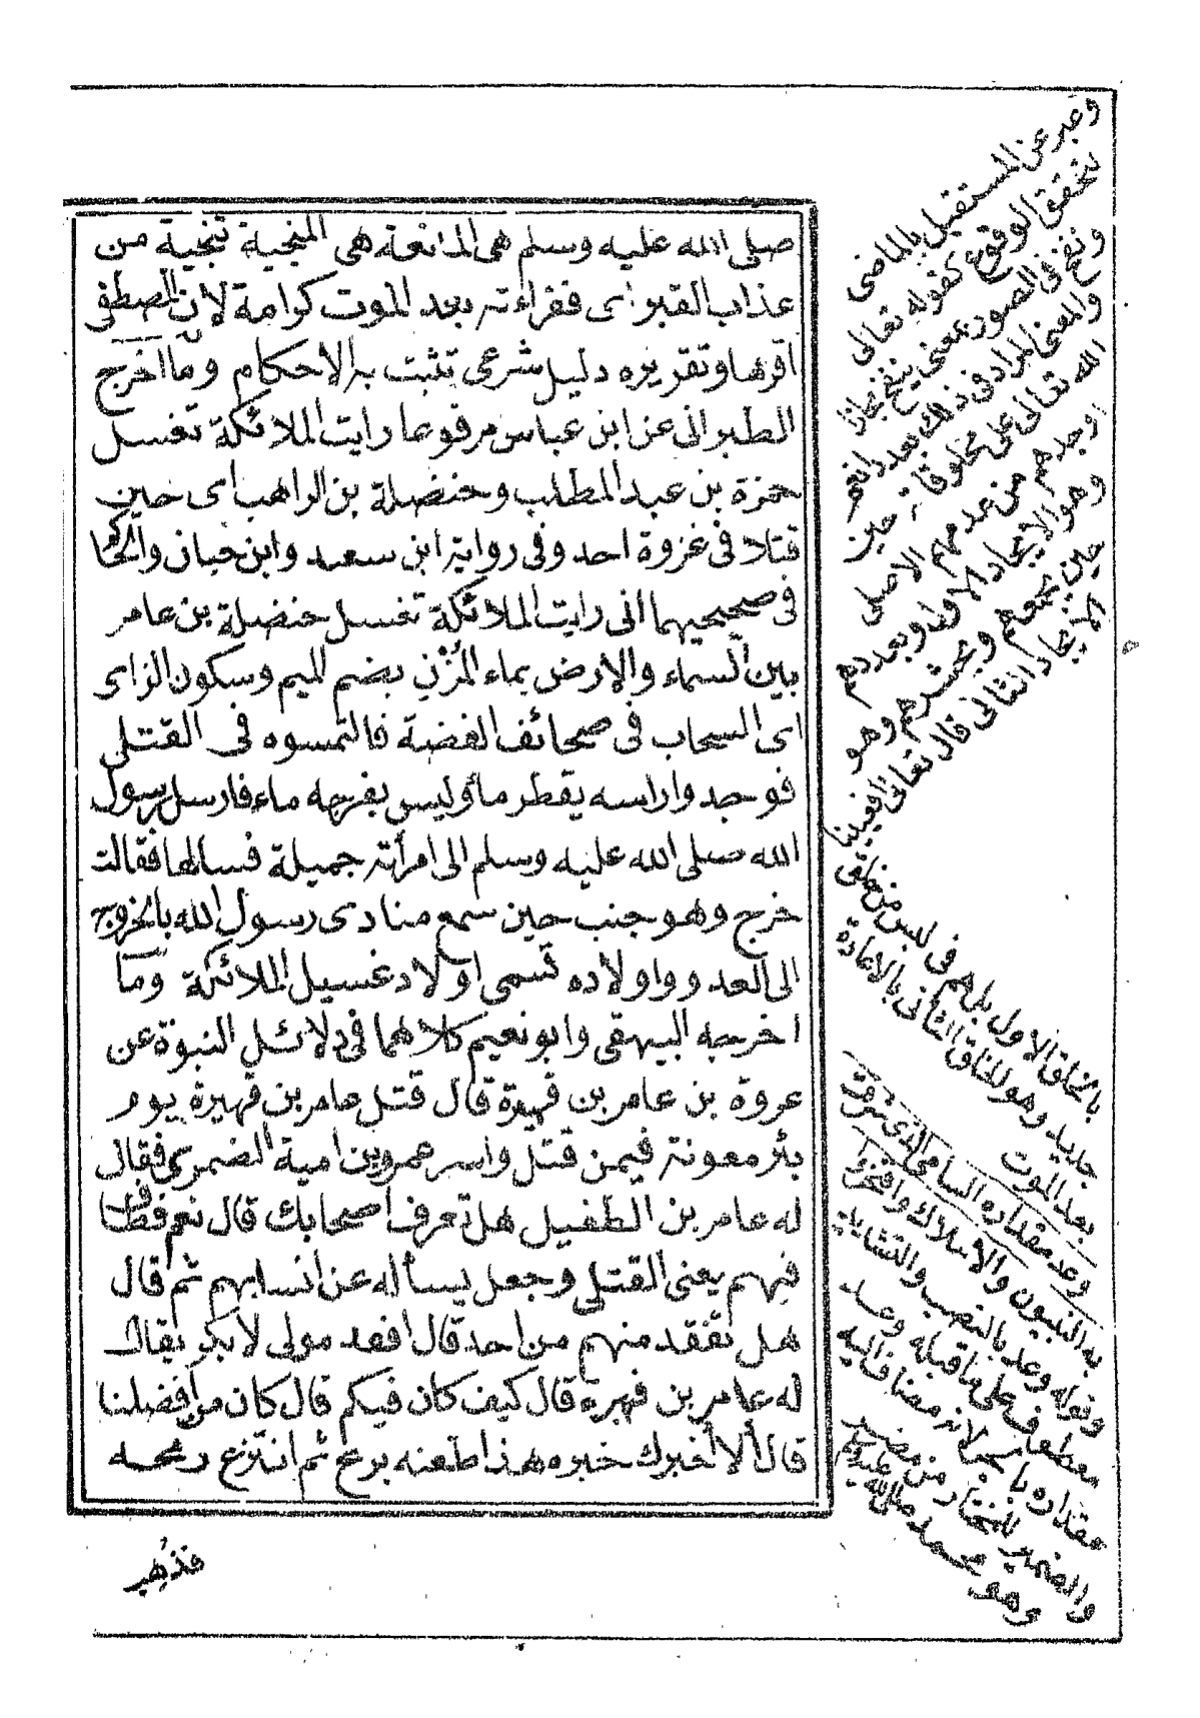 صلى الله عليه وسلم هى المانعة هى المنجية تنجية من
عذاب القبر اى فقراءته بعد الموت كرامة لان المصطفى
اقرها وتقريره دليل شرعى تثبت به الاحكام وما اخرج
الطبرانى عن ابن عباس مرفوعا رايت الملائكة تغسل
حمزة بن عبد المطلب وحنضلة بن الراهب اى حين
قتلا فى غزوة احد وفى رواية ابن سعد وابن حبان والحاكم
فى صحيحيهما انى رايت الملائكة تغسل حنضلة بن عامر
بين السماء والارض بماء المُزْنِ بضم الميم وسكون الزاى
اى السحاب فى صحائف الفضة فالتمسوه فى القتلى
فوجدوا راسه يقطر ماء وليس بقربه ماء فارسل رسول
الله صلى الله عليه وسلم الى امرأته جميلة فسالها فقالت
خرج وهو جنب حين سمع منادى رسول الله بالخروج
الى العدو واولاده تسمى اولاد غسيل الملائكة وما
اخرجه البيهقى وابو نعيم كلاهما فى دلائل النبوة عن
عروة بن عامر بن فهيرة قال قتل عامر بن فهيرة يوم
بئر معونة فيمن قتل واسر عمرو بن امية الضمرى فقال
له عامر بن الطفيل هل تعرف اصحابك قال نعم فطاف
فيهم يعنى القتلى وجعل يسأله عن انسابهم ثم قال
هل تفقد منهم من احد قال افقد مولى لابكر يقال
له عامر بن فهيرة قال كيف كان فيكم قال كان من افضلنا
قال ألا أخبرك خبره هذا طعنه برمح ثم انتزع رمحه
فذهب
وعبر عن المستقبل بالماضى
لتحقق الوقوع كقوله تعالى
ونفخ فى الصور بمعنى ينفخ مجازا
والمعنى المراد فى ذلك بعدد انعم
الله تعالى على مخلوقاته حين
اوجدهم من عدمهم الاصلى
وهو الايجاد الاول وبعددهم
حين يجمعهم ويحشرهم وهو
الايجاد الثانى قال تعالى افعيينا
بالخلق الاول بل هم فى لبس من خلق
جديد وهو الخلق الثانى بالاعادة
بعد الموت
وعد مقداره السامى الذى شرفت
به النبيون والاملاك وافتخروا
وقوله وعد بالنصب والتشديد
معطوف على ما قبله وعد
مقداره بالجر لانه مضاف اليه
والضمير للمختار من مضر
وهو محمد صلى الله عليه وسلم